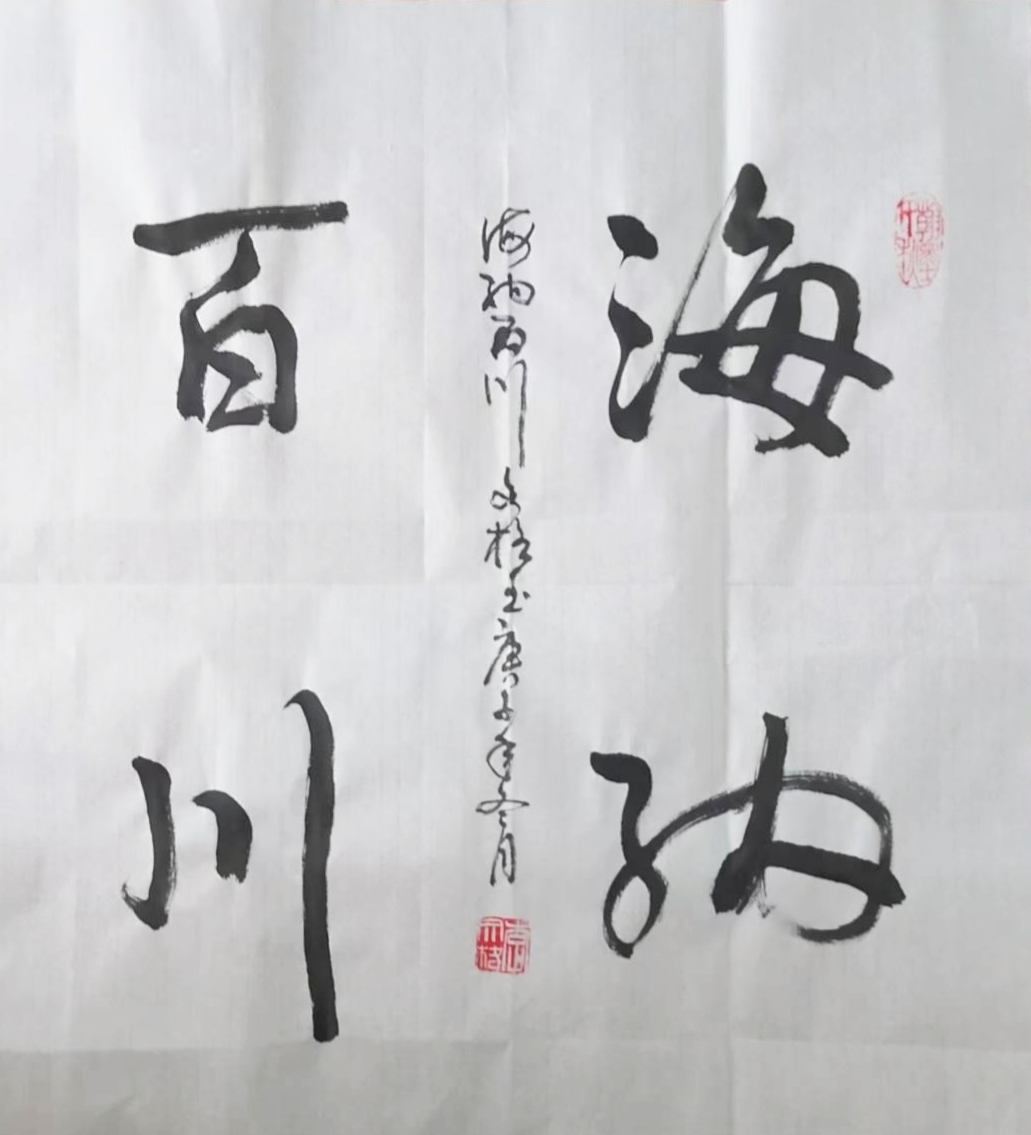 海纳
海纳百川 文格书 庚子年冬月
百川